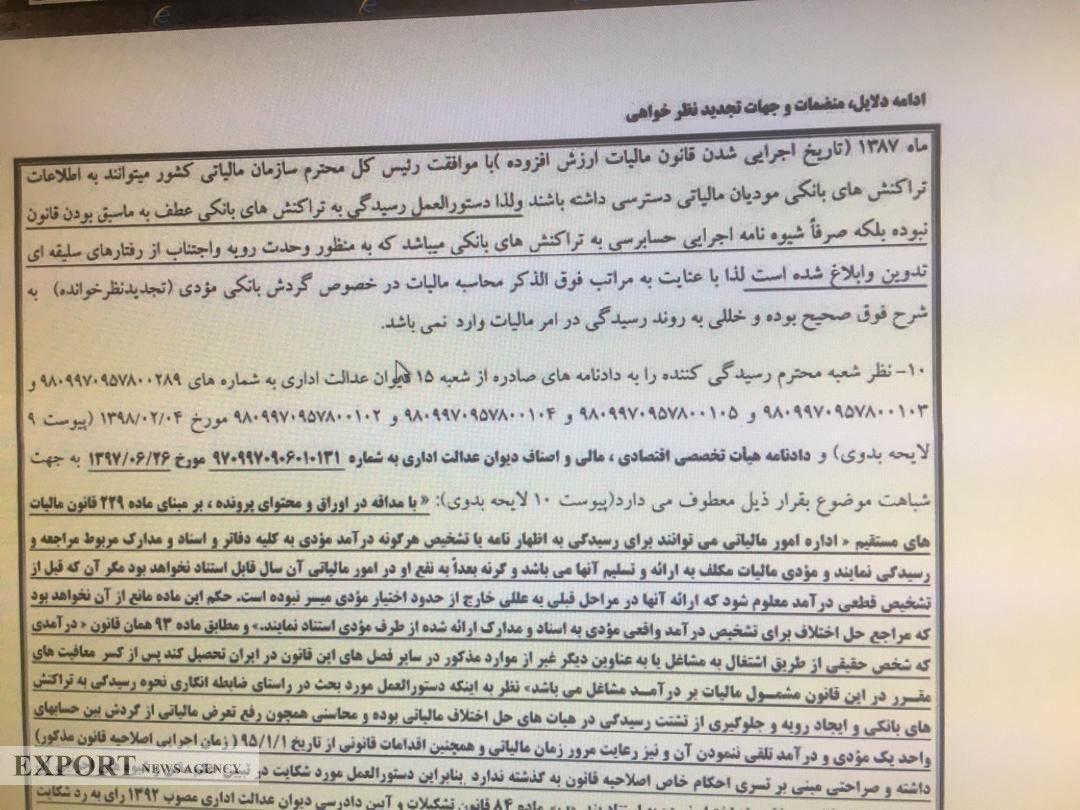 ادامه دلایل، منضمات و جهات تجدید نظر خواهی
ماه ۱۳۸۷ (تاریخ اجرایی شدن قانون مالیات ارزش افزوده )با موافقت رئیس کل محترم سازمان مالیاتی کشور میتوانند به اطلاعات
تراکنش های بانکی مودیان مالیاتی دسترسی داشته باشند ولذا دستورالعمل رسیدگی به تراکنش های بانکی عطف به ماسبق بودن قانون
نبوده بلکه صرفاً شیوه نامه اجرایی حسابرسی به تراکنش های بانکی میباشد که به منظور وحدت رویه واجتناب از رفتارهای سلیقه ای
تدوین وابلاغ شده است لذا با عنایت به مراتب فوق الذکر محاسبه مالیات در خصوص گردش بانکی مؤدی (تجدیدنظرخوانده) به
شرح فوق صحیح بوده و خللی به روند رسیدگی در امر مالیات وارد نمی باشد.
۱۰- نظر شعبه محترم رسیدگی کننده را به دادنامه های صادره از شعبه ۱۵ دیوان عدالت اداری به شماره های ۹۸۰۹۹۷۰۹۵۷۸۰۰۲۸۹ و
۹۸۰۹۹۷۰۹۵۷۸۰۰۱۰۳ و ۹۸۰۹۹۷۰۹۵۷۸۰۰۱۰۵ و ۹۸۰۹۹۷۰۹۵۷۸۰۰۱۰۴ و ۹۸۰۹۹۷۰۹۵۷۸۰۰۱۰۲ مورخ ۱۳۹۸/۰۲/۰۴ (پیوست ۹
لایحه بدوی) و دادنامه هیأت تخصصی اقتصادی ، مالی و اصناف دیوان عدالت اداری به شماره ۹۷۰۹۹۷۰۹۰۶۰۱۰۱۳۱ مورخ ۱۳۹۷/۰۶/۲۶ به جهت
شباهت موضوع بقرار ذیل معطوف می دارد(پیوست ۱۰ لایحه بدوی): « با مداقه در اوراق و محتوای پرونده ، بر مبنای ماده ۲۲۹ قانون مالیات
های مستقیم « اداره امور مالیاتی می توانند برای رسیدگی به اظهار نامه یا تشخیص هرگونه درآمد مؤدی به کلیه دفاتر و اسناد و مدارک مربوط مراجعه و
رسیدگی نمایند و مؤدی مالیات مکلف به ارائه و تسلیم آنها می باشد و گرنه بعداً به نفع او در امور مالیاتی آن سال قابل استناد نخواهد بود مگر آن که قبل از
تشخیص قطعی درآمد معلوم شود که ارائه آنها در مراحل قبلی به عللی خارج از حدود اختیار مؤدی میسر نبوده است. حکم این ماده مانع از آن نخواهد بود
که مراجع حل اختلاف برای تشخیص درآمد واقعی مؤدی به اسناد و مدارک ارائه شده از طرف مؤدی استناد نمایند.» و مطابق ماده ۹۳ همان قانون « درآمدی
که شخص حقیقی از طریق اشتغال به مشاغل یا به عناوین دیگر غیر از موارد مذکور در سایر فصل های این قانون در ایران تحصیل کند پس از کسر معافیت های
مقرر در این قانون مشمول مالیات بر درآمد مشاغل می باشد» نظر به اینکه دستورالعمل مورد بحث در راستای ضابطه انگاری نحوه رسیدگی به تراکنش
های بانکی و ایجاد رویه و جلوگیری از تشتت رسیدگی در هیات های حل اختلاف مالیاتی بوده و محاسنی همچون رفع تعرض مالیاتی از گردش بین حسابهای
واحد یک مؤدی و درآمد تلقی ننمودن آن و نیز رعایت مرور زمان مالیاتی و همچنین اقدامات قانونی از تاریخ ۹۵/۱/۱ ( زمان اجرایی اصلاحیه قانون مذکور)
داشته و صراحتی مبنی بر تسری احکام خاص اصلاحیه قانون به گذشته ندارد بنابراین دستورالعمل مورد شکایت در
ماده ۸۴ قانون تشکیلات و آیین دادرسی دیوان عدالت اداری مصوب ۱۳۹۲ رای به رد شکایت
EXPORT NEWS AGENCY